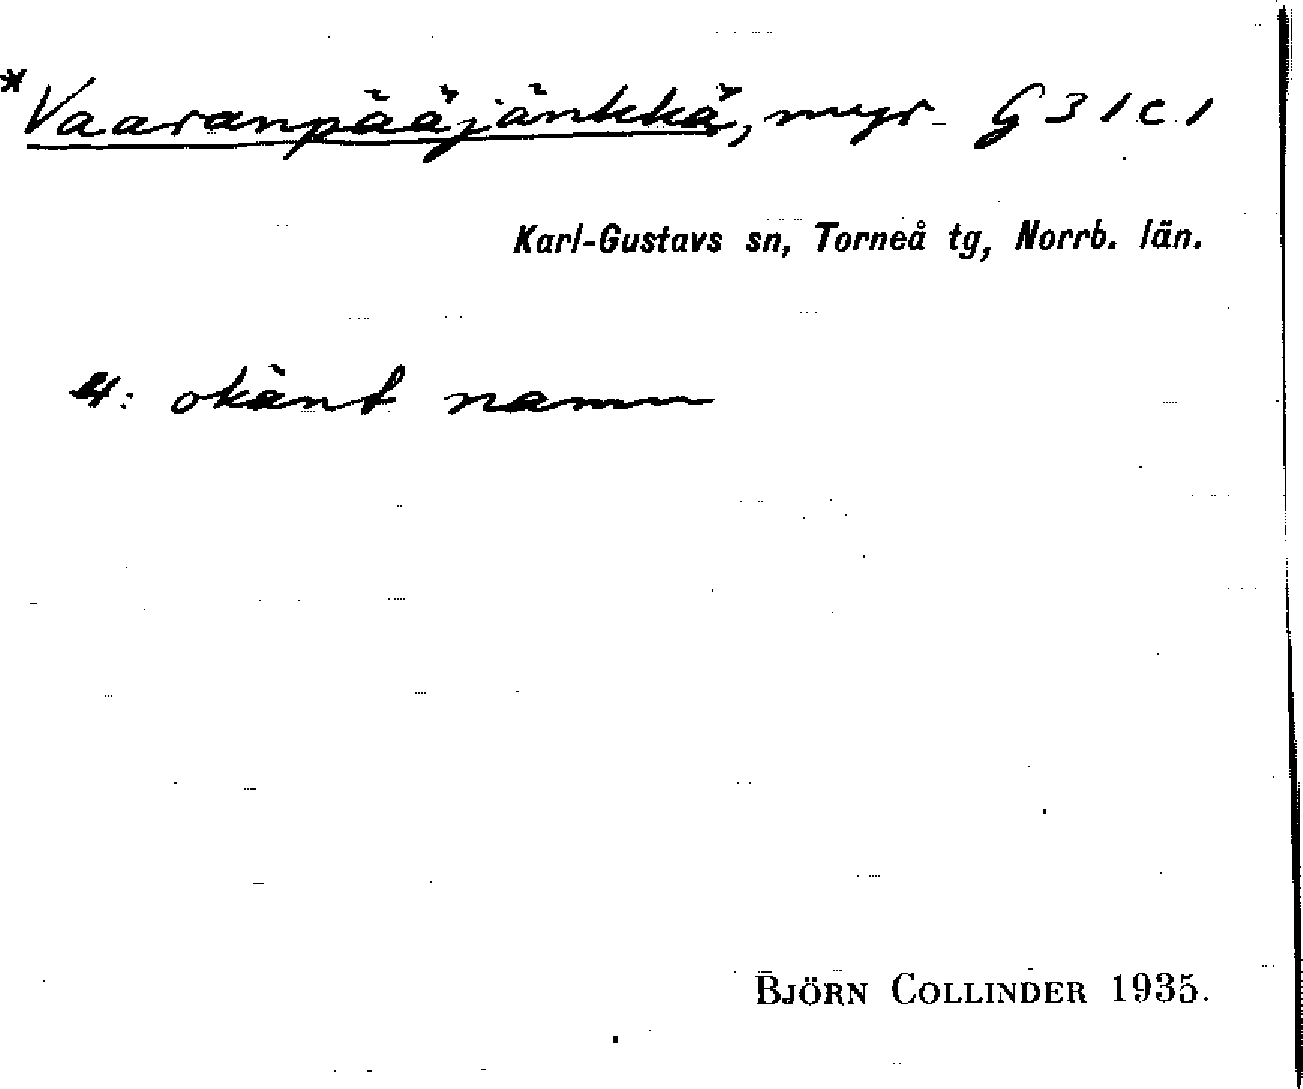 *Vaaranpääjänkkä, myr. G 31 c 1
Karl-Gustavs sn, Torneå tg, Norrb. län.
: okänt namn
BJÖRN COLLINDER 1935.